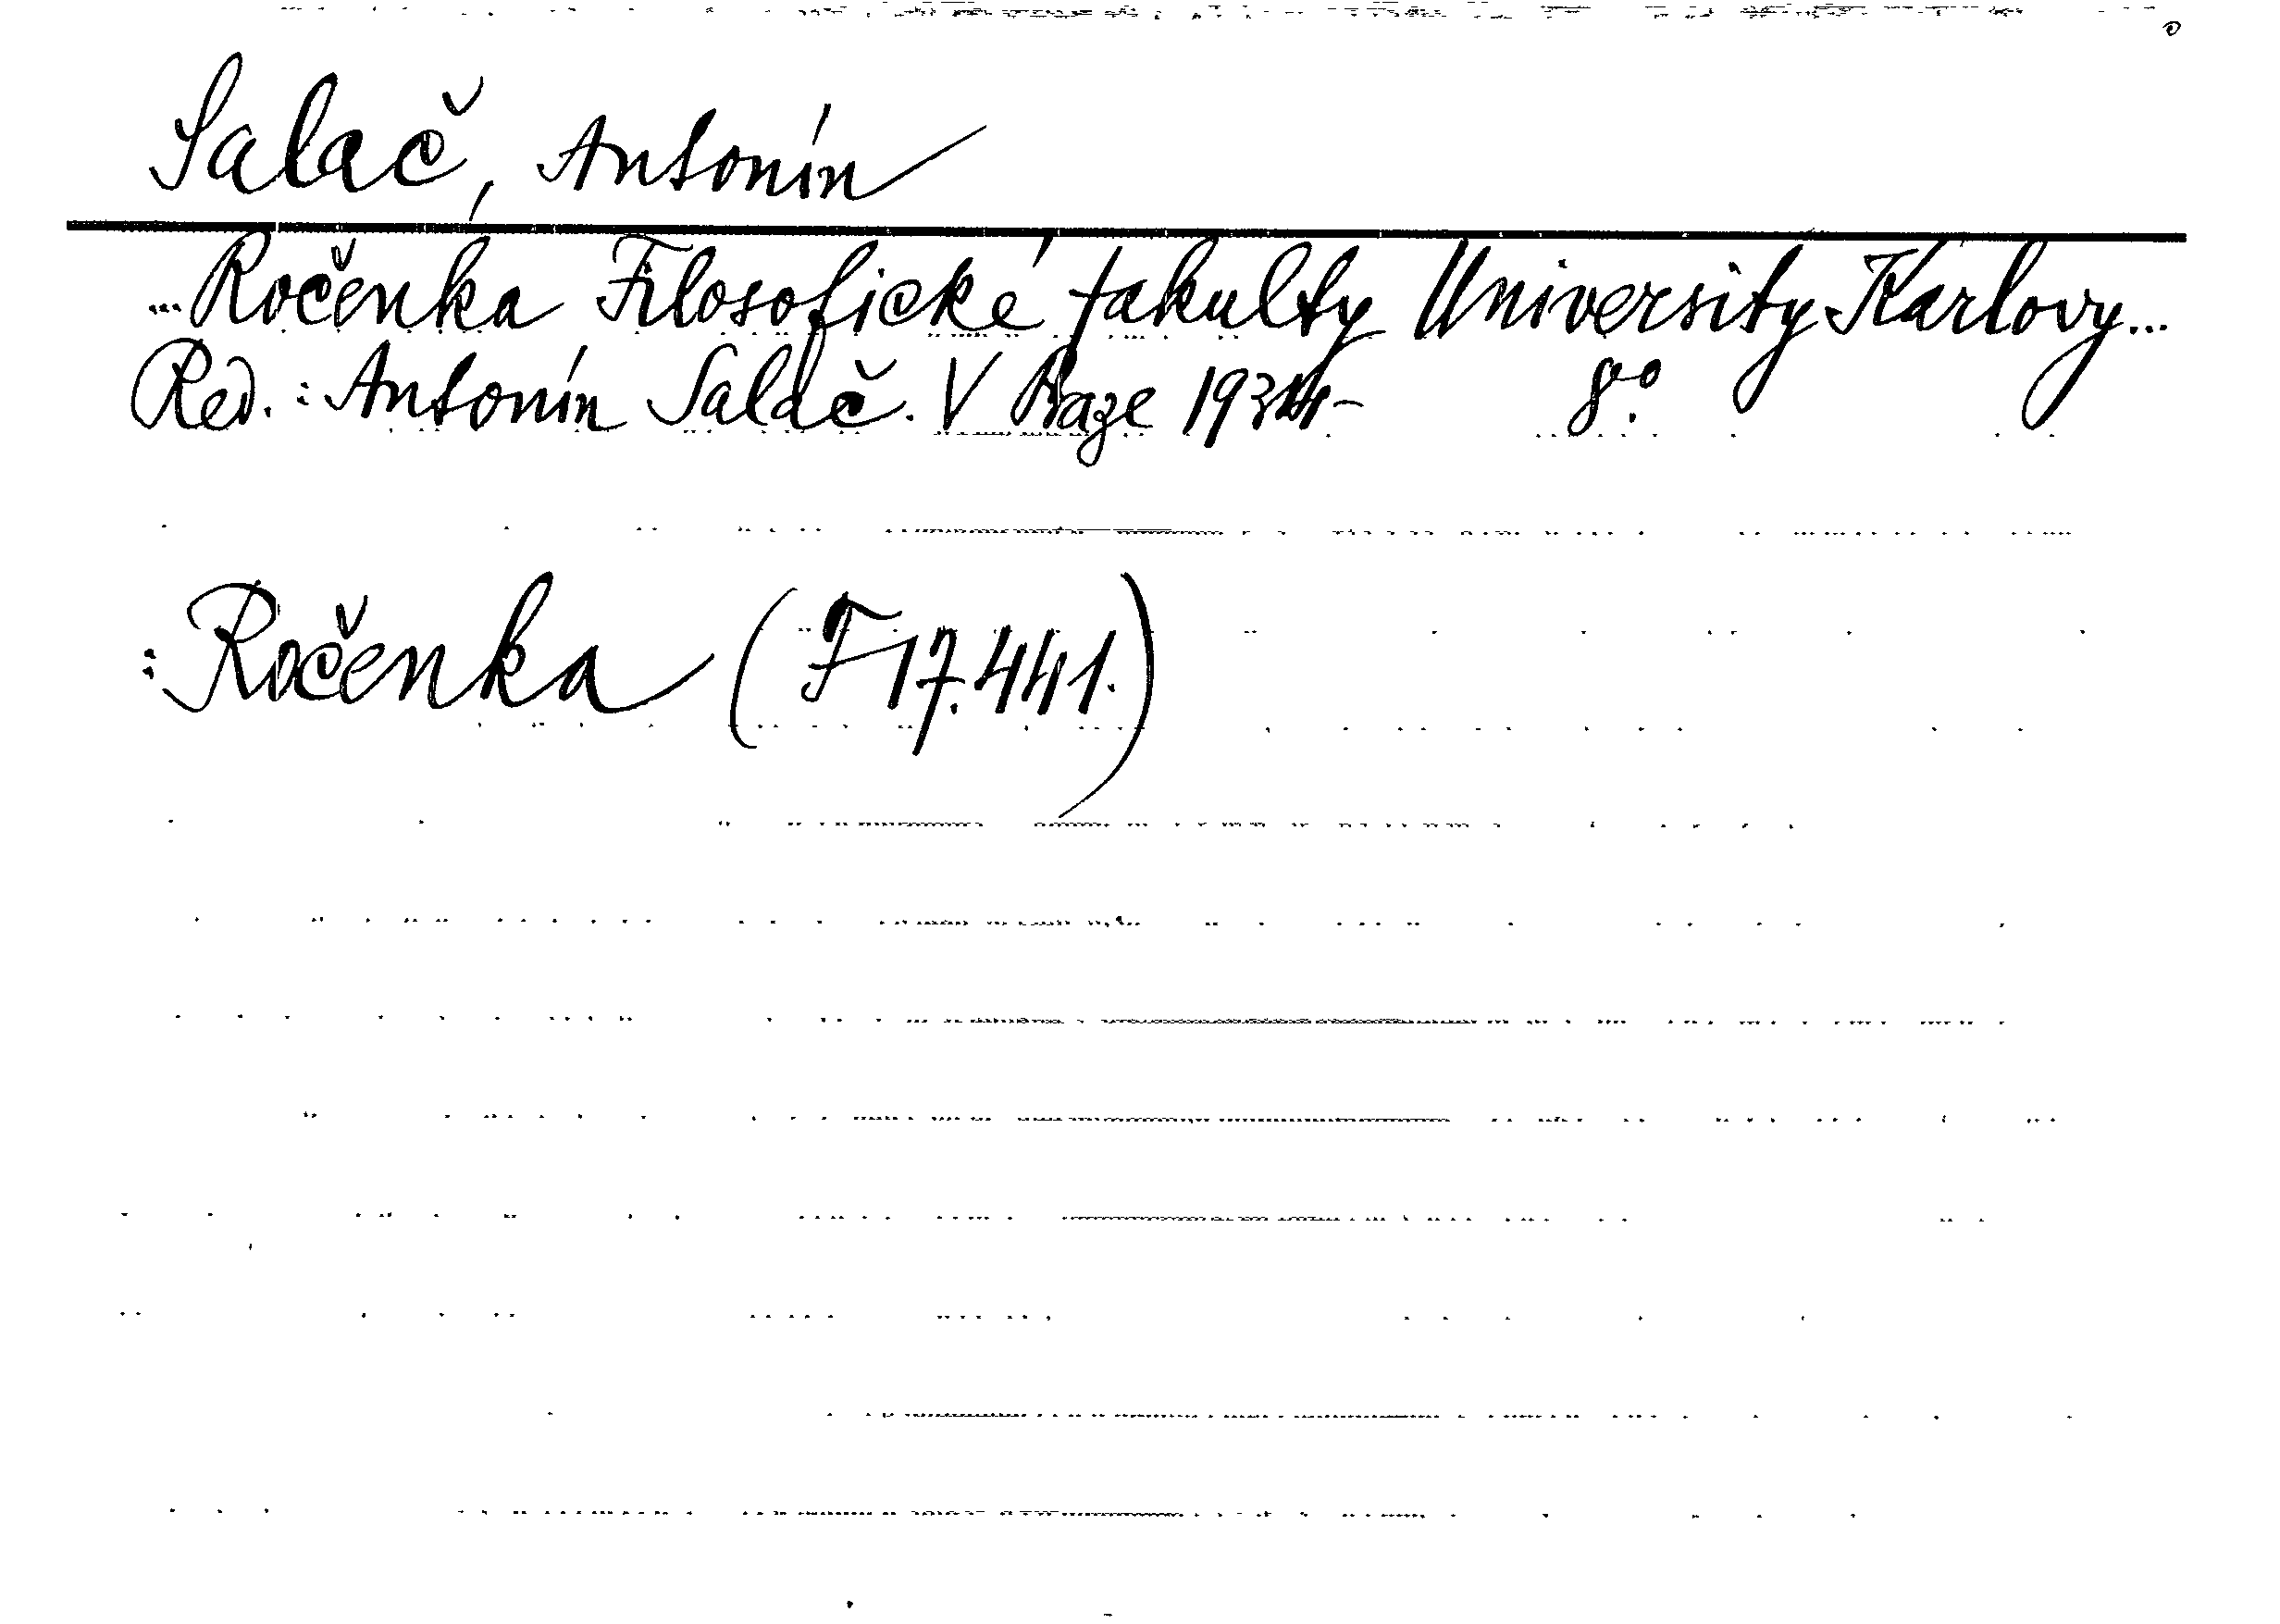 Salač, Antonín
...Ročenka Filosofické fakulty University Karlovy...
Red.: Antonín Salač. V Praze 8°.
: Ročenka (F 17.441.)